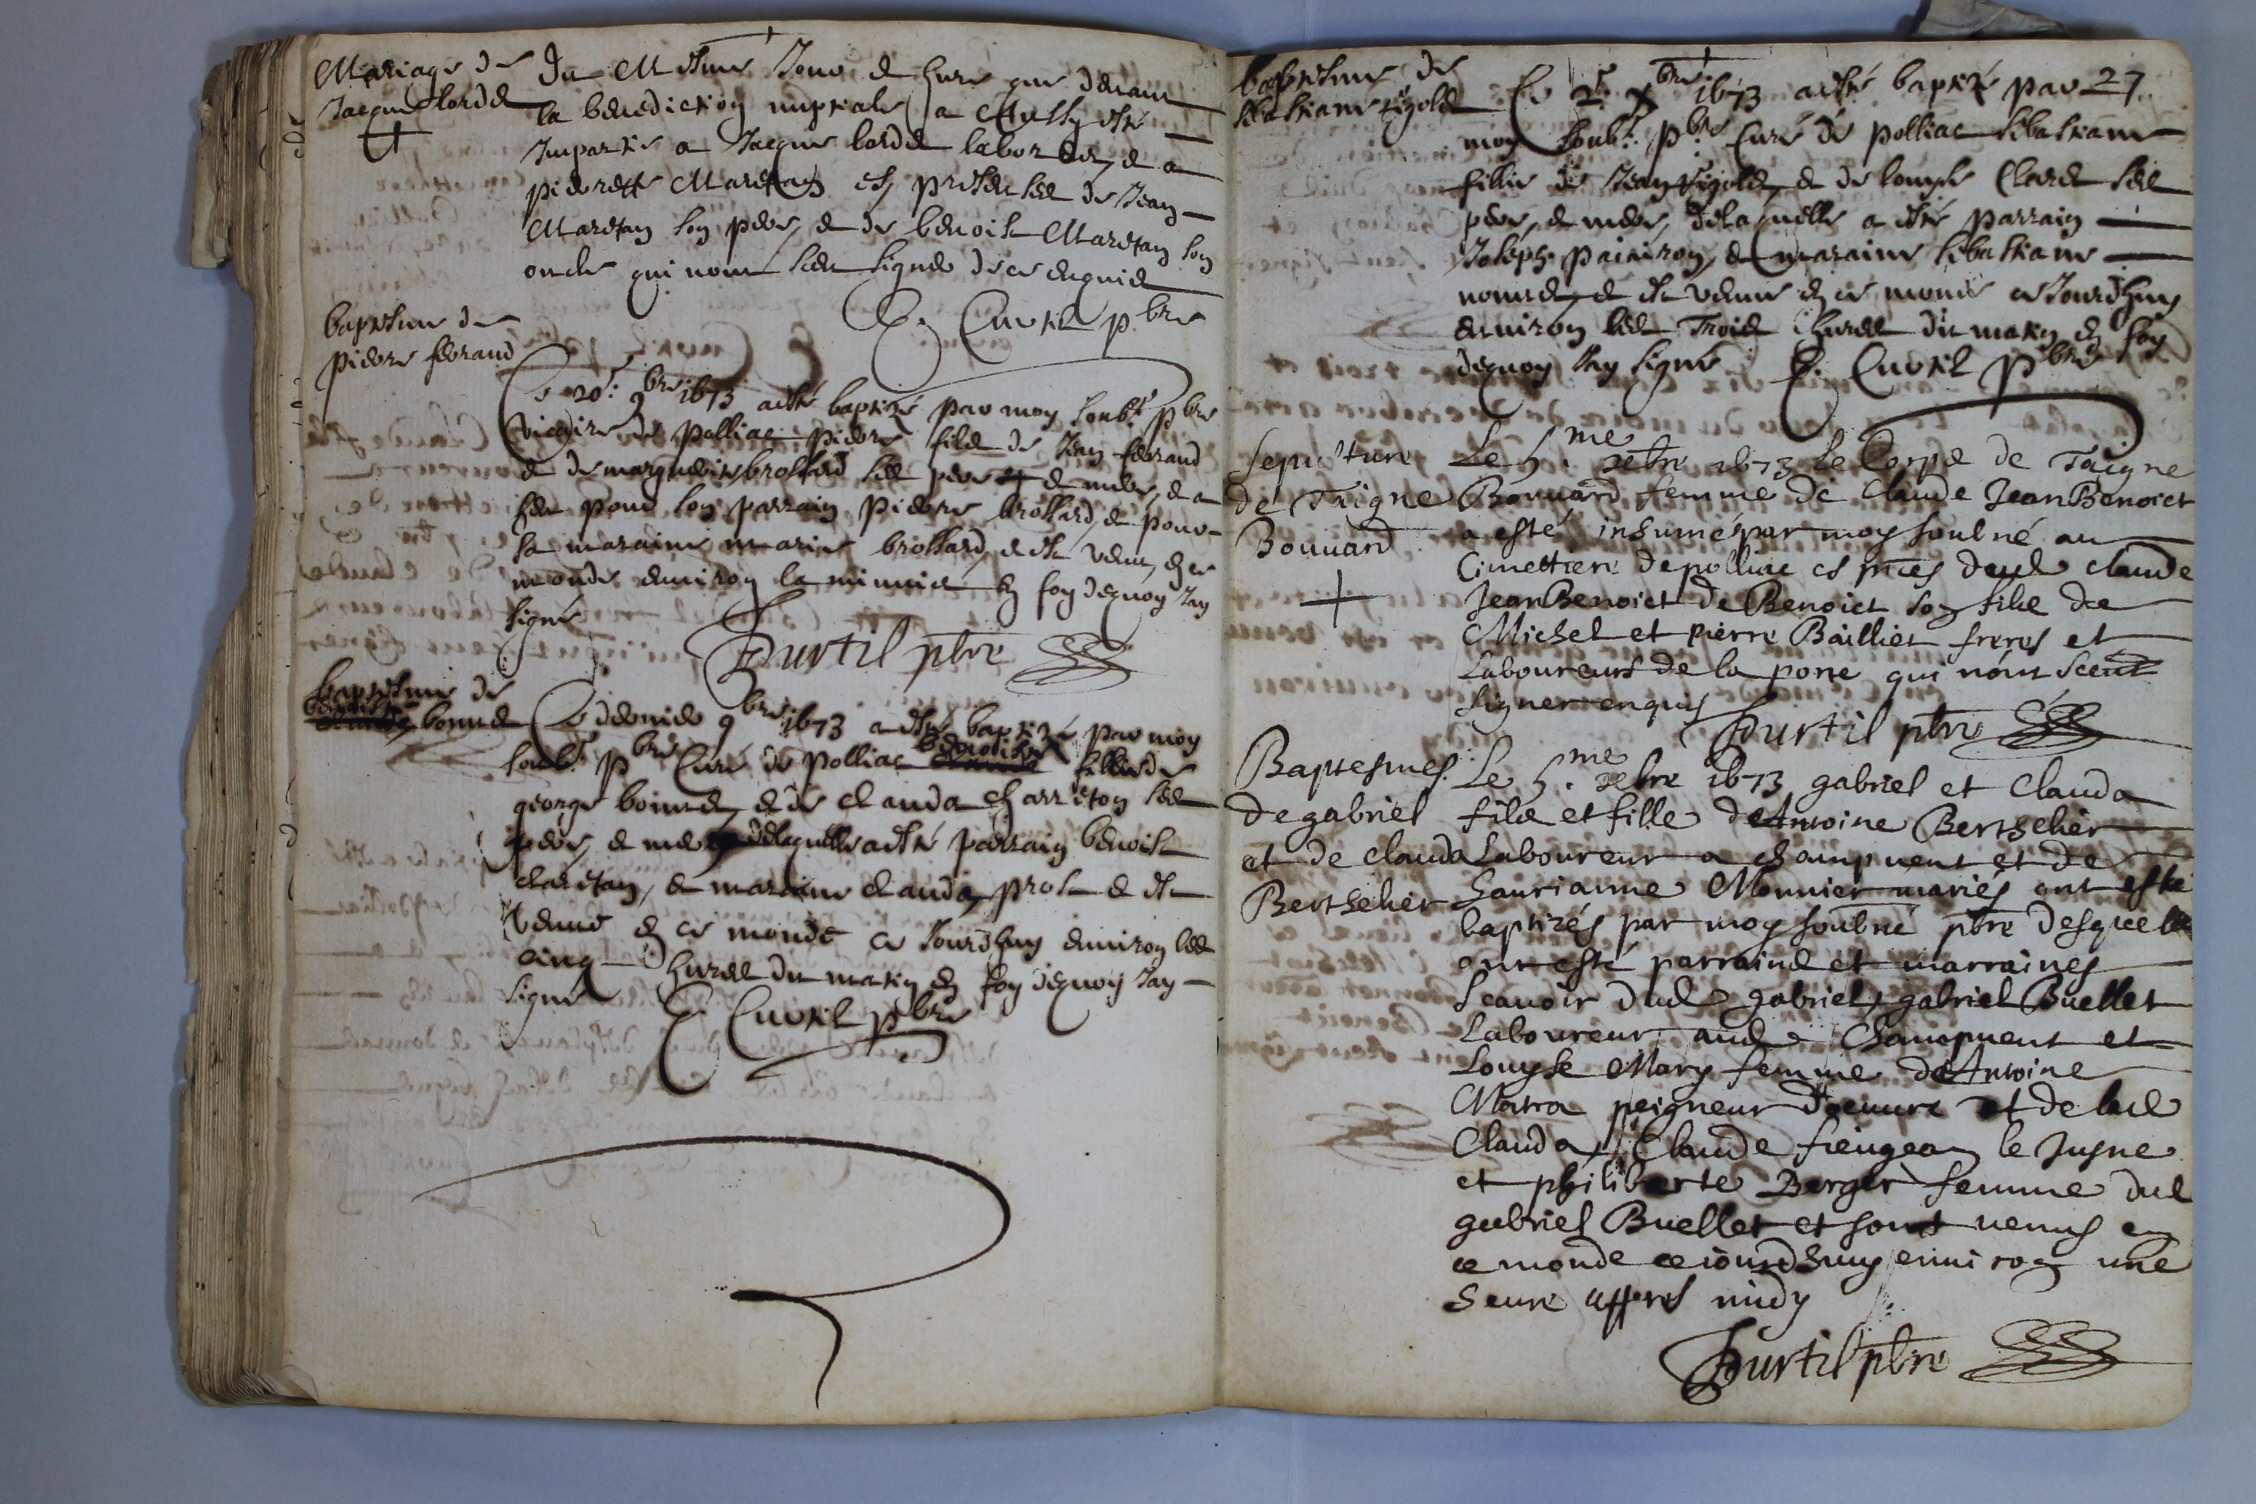 Mariage de
Jacque Lordet
Du Mesme Jour et heure que devant
la benediction nuptiale a Aussy esté
Impartie a Jacque lordet laborer, et a
pierrette Maretan en presences de Jean
Maretan son pere, et de benoist Maretan son
oncle qui nont sceu signer de ce enquis
C. Curtil pbre
baptesme de
pierre ferand
Le 20e 9bre 1673 a esté baptizé par moy soubs.é pbre
vicaire de polliac pierre fils de Jean ferand
et de marguerite brossard ses pere et mere, et a
heu pour son parrain pierre brossard, et pour
sa maraine marie brossard, et est venu en ce
monde environ la minuict en foy dequoy Jay
signé
Curtil pbre
baptesme de
benoiste bonnet
Le dernier 9bre 1673 a esté baptizé par moy
soubs.é pbre Curé de polliac benoiste fillie de
george et de clauda charreton ses
pere, et mere delaquelle a esté parrain benoist
claretan, et maraine clauda prost et est
venue en ce monde ce Jourdhuy environ les
cinq heures du matin en foy dequoy Jay
signé C. Curtil pbre
baptesme de
sebastiane rigolet
27
Le 2e xbre 1673 a esté baptizé par
moy soubs.é pbre Curé de polliac sebastiane
fillie de Jean rigolet, et de Louyse Claret ses
pere, et mere, delaquelle a esté parrain
Joseph et maraine sebastiane
et est venue en ce monde ce Jourdhuy
environ les Trois heures du matin en foy
dequoy Jay signé C. Curtil pbre
Sepulture
de Taigne
Bouuard
Le 5.me xbre 1673 le Corps de Taigne
Bouuard femme de Claude JeanBenoict
a esté inhumé par moy soubné au
Cimettiere de polliac es pnces dud Claude
JeanBenoict de Benoict son fils de
Michel et pierre Bailliet freres et
Laboureurs de la pone qui nont sceut
signer enquis
Curtil pbre
Baptesmes
de gabriel
et de Clauda
Berthelier
Le 5.me xbre 1673 gabriel et Clauda
fils et fille de Antoine Berthelier
Laboureur a Champuent et de
Monnier mariés ont esté
baptizés par moy soubné pbre desquels
ont esté parrains et marraines
scauoir dud gabriel, gabriel Buellet
Laboureur aud Champuent et
Louyse Mary femme de Antoine
Matra peigneur et de lad
Clauda, Claude le Jusne
et philiberte Berger femme dud
gabriel Buellet et sont venus en
ce monde ce iourdhuy enuiron une
heure appres midy
Curtil pbre